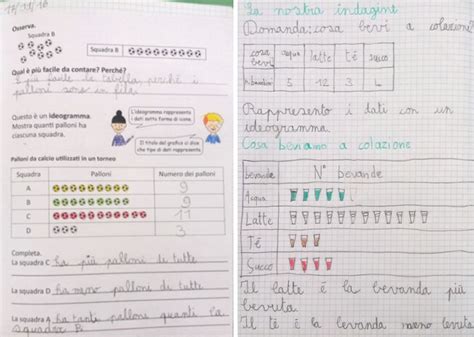 17/11/16
Osserva.
Squadra B
Squadra B
Qual è più facile da contare? Perché?
È più facile la tabella perché i
palloni sono in fila.
Questo è un ideogramma.
Mostra quanti palloni ha
ciascuna squadra.
L'ideogramma rappresenta
i dati sotto forma di icone.
Il titolo del grafico ci dice
che tipo di dati rappresenta.
Palloni da calcio utilizzati in un torneo
Squadra Palloni Numero dei palloni
A 9
B 9
C 11
D 3
Completa.
La squadra C ha più palloni di tutte
La squadra D ha meno palloni di tutte
La squadra A ha tanti palloni quanti la
squadra B.
La nostra indagine
Domanda: cosa bevi a colazione
cosa bevi acqua latte tè succo
n. bambini 5 12 3 4
Rappresento i dati con un
ideogramma.
Cosa beviamo a colazione
bevande N° bevande
Acqua
Latte
Tè
Succo
Il latte è la bevanda più
bevuta.
Il tè è la bevanda meno bevuta